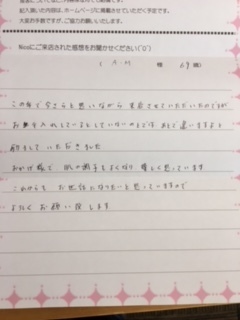 記入頂いた内容は、ホームページに掲載させていただく予定です。
大変お手数ですが、ご協力お願いいたします。
Nicoにご来店された感想をお聞かせください(^o^)
I A.M 様 69歳)
この年で今さらと思いながら 来店させていただいたのですが
お手入れしているとしていないのとでは、あとで違いますよと
励まして いただきました
おかげ様で 肌の調子もよくなり 嬉しく思っています
これからも お世話になりたいと思っていますので
よろしく お願い致します